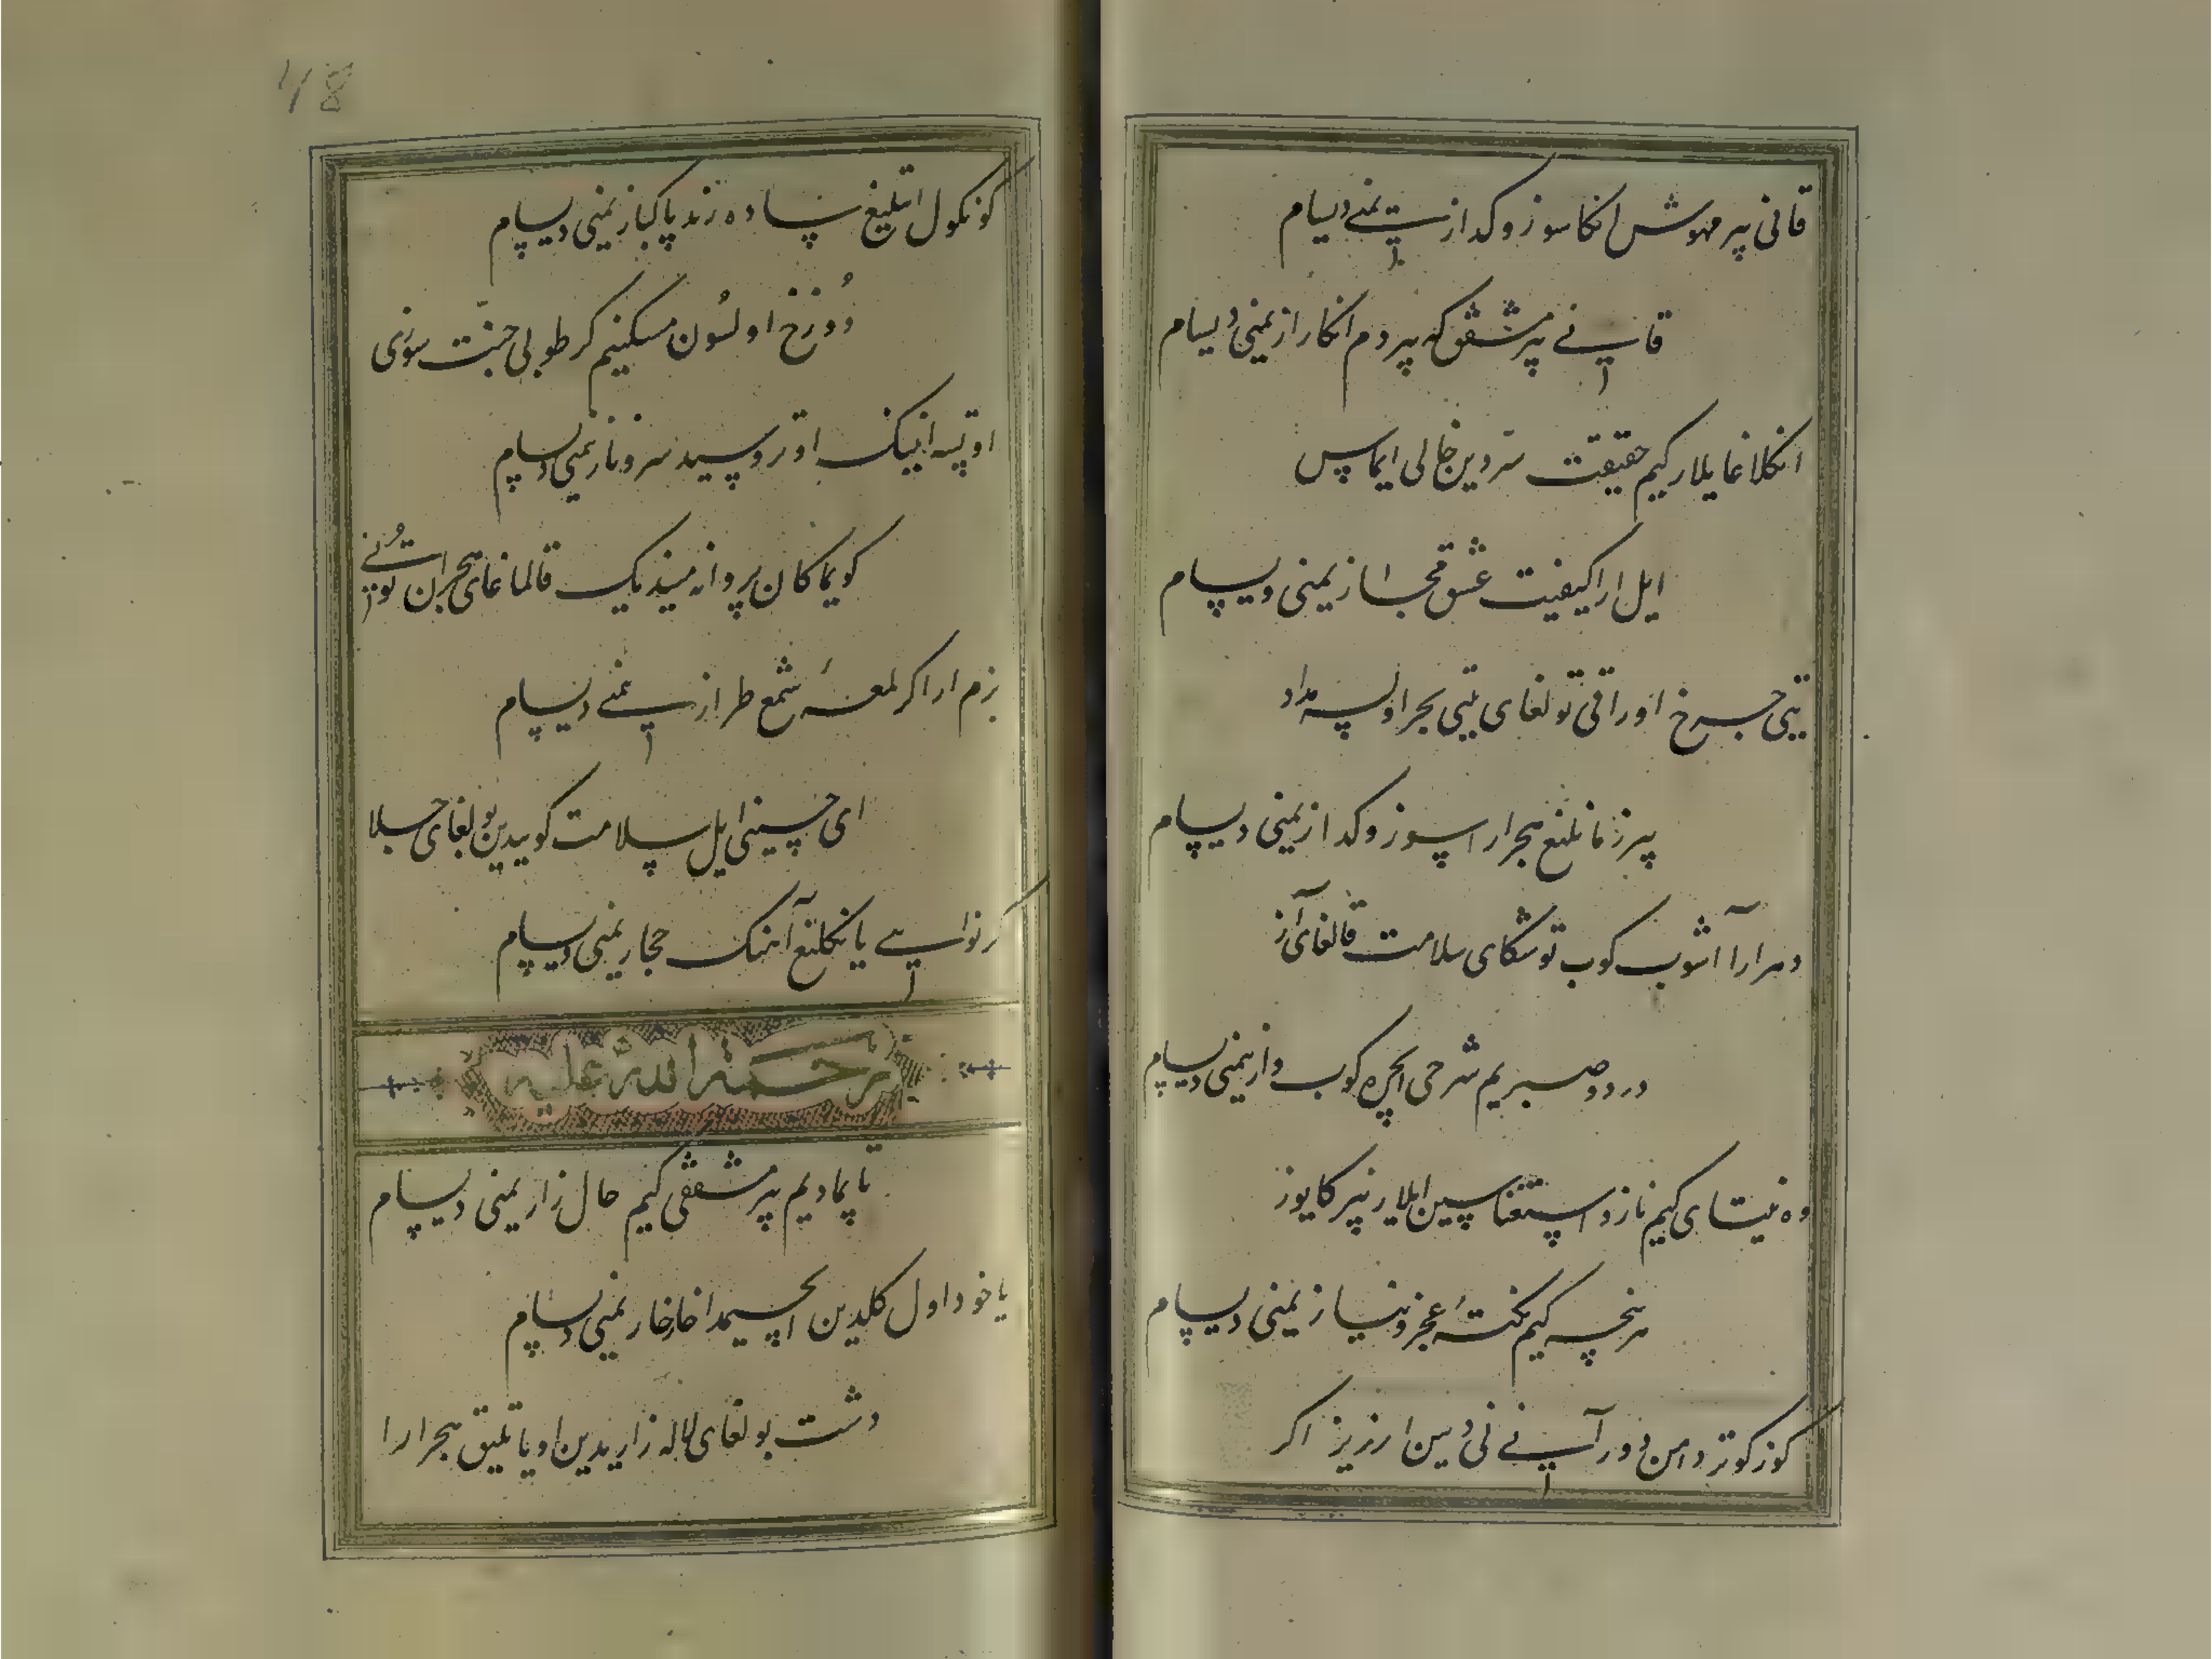 قانی بیر مهوش انکا سوز و کدازیمنی دیسام
قانی بیر مشفق که بیر دم انکا رازیمنی دیسام
انکلاغایلار کیم حقیقت سردین خالی ایماس
ایل ارا کیفیت عشق مجازیمنی دیسام
یتی چرخ اوراقی تولغای یتی بحر اولسه مداد
بیر زمانلیغ هجر ارا سوز و کدازیمنی دیسام
دهر ارا آشوب کوب توشکای سلامت قالغای آز
درد و صبریم شرحی ایچره کوب و ازیمنی دیسام
وه نیتای کیم ناز و استغناسین ایلار بیرکا یوز
هر نیچه کیم نکتهٔ عجز و نیازیمنی دیسام
کوزکو تر دامن دور آنی نی دیین ارزیز اکر
کونکول اتلیغ ساده رند پاکبازیمنی دیسام
دوزخ اولسون مسکنیم کر طوبی جنت سوزی
اوتسه انینک اوترو سیدا سرو نازیمنی دیسام
کویماکان پروانه میندیک قالماغای هجران تونی
بزم ارا کر لمعهٔ شمع طرازیمنی دیسام
ای حسینی ایل سلامت کوییدین بولغای جلا
کر نواسی یانکلیغ آهنک حجازیمنی دیسام
رحمة الله علیه
تاپمادیم بیر مشفقی کیم حال زاریمنی دیسام
یا خود اول کلدین ایچیمدا خارخاریمنی دیسام
دشت بولغای لاله زاریدین اویاتلیق هجر ارا